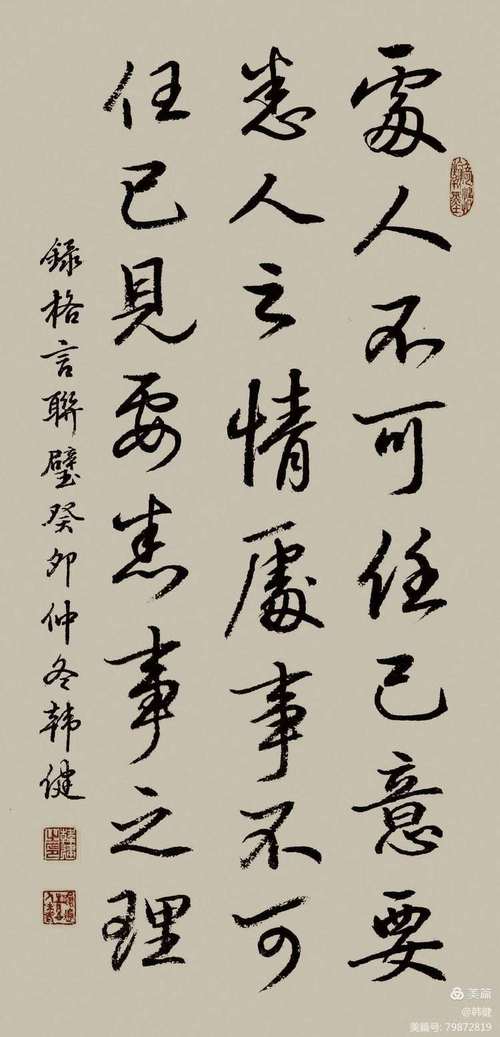 處人不可任己意要
悉人之情處事不可
任己見要悉事之理
録格言聯璧癸卯仲冬韩健
美篇
@韩健
美篇号: 79872819